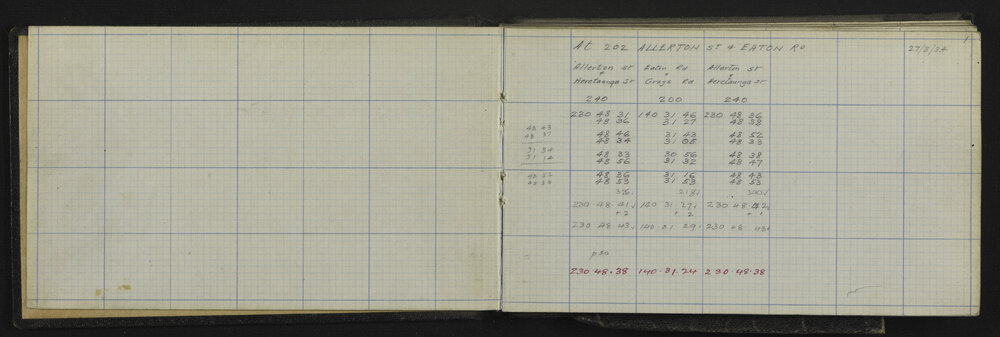 1
At 202 ALLERTON ST & EATON RD 27/2/34
Allerton St Eaton Rd Allerton St
Heretaunga St Grays Rd Heretaunga St
240 200 240
230 48 31 140 31 46 230 48 36
48 36 31 27 48 38
48 43
48 37
48 46 31 43 48 52
48 34 31 05 48 33
31 34
31 14
48 33 30 56 48 38
48 56 31 32 48 47
48 52
48 36 31 16 48 43
48 53 31 53 48 53
218
230 48 41 140 31 27 230 48 42
+2 +2 +1
230 48 43 140 31 29 230 48 43
p30
230 48 38 140 31 24 230 48 38